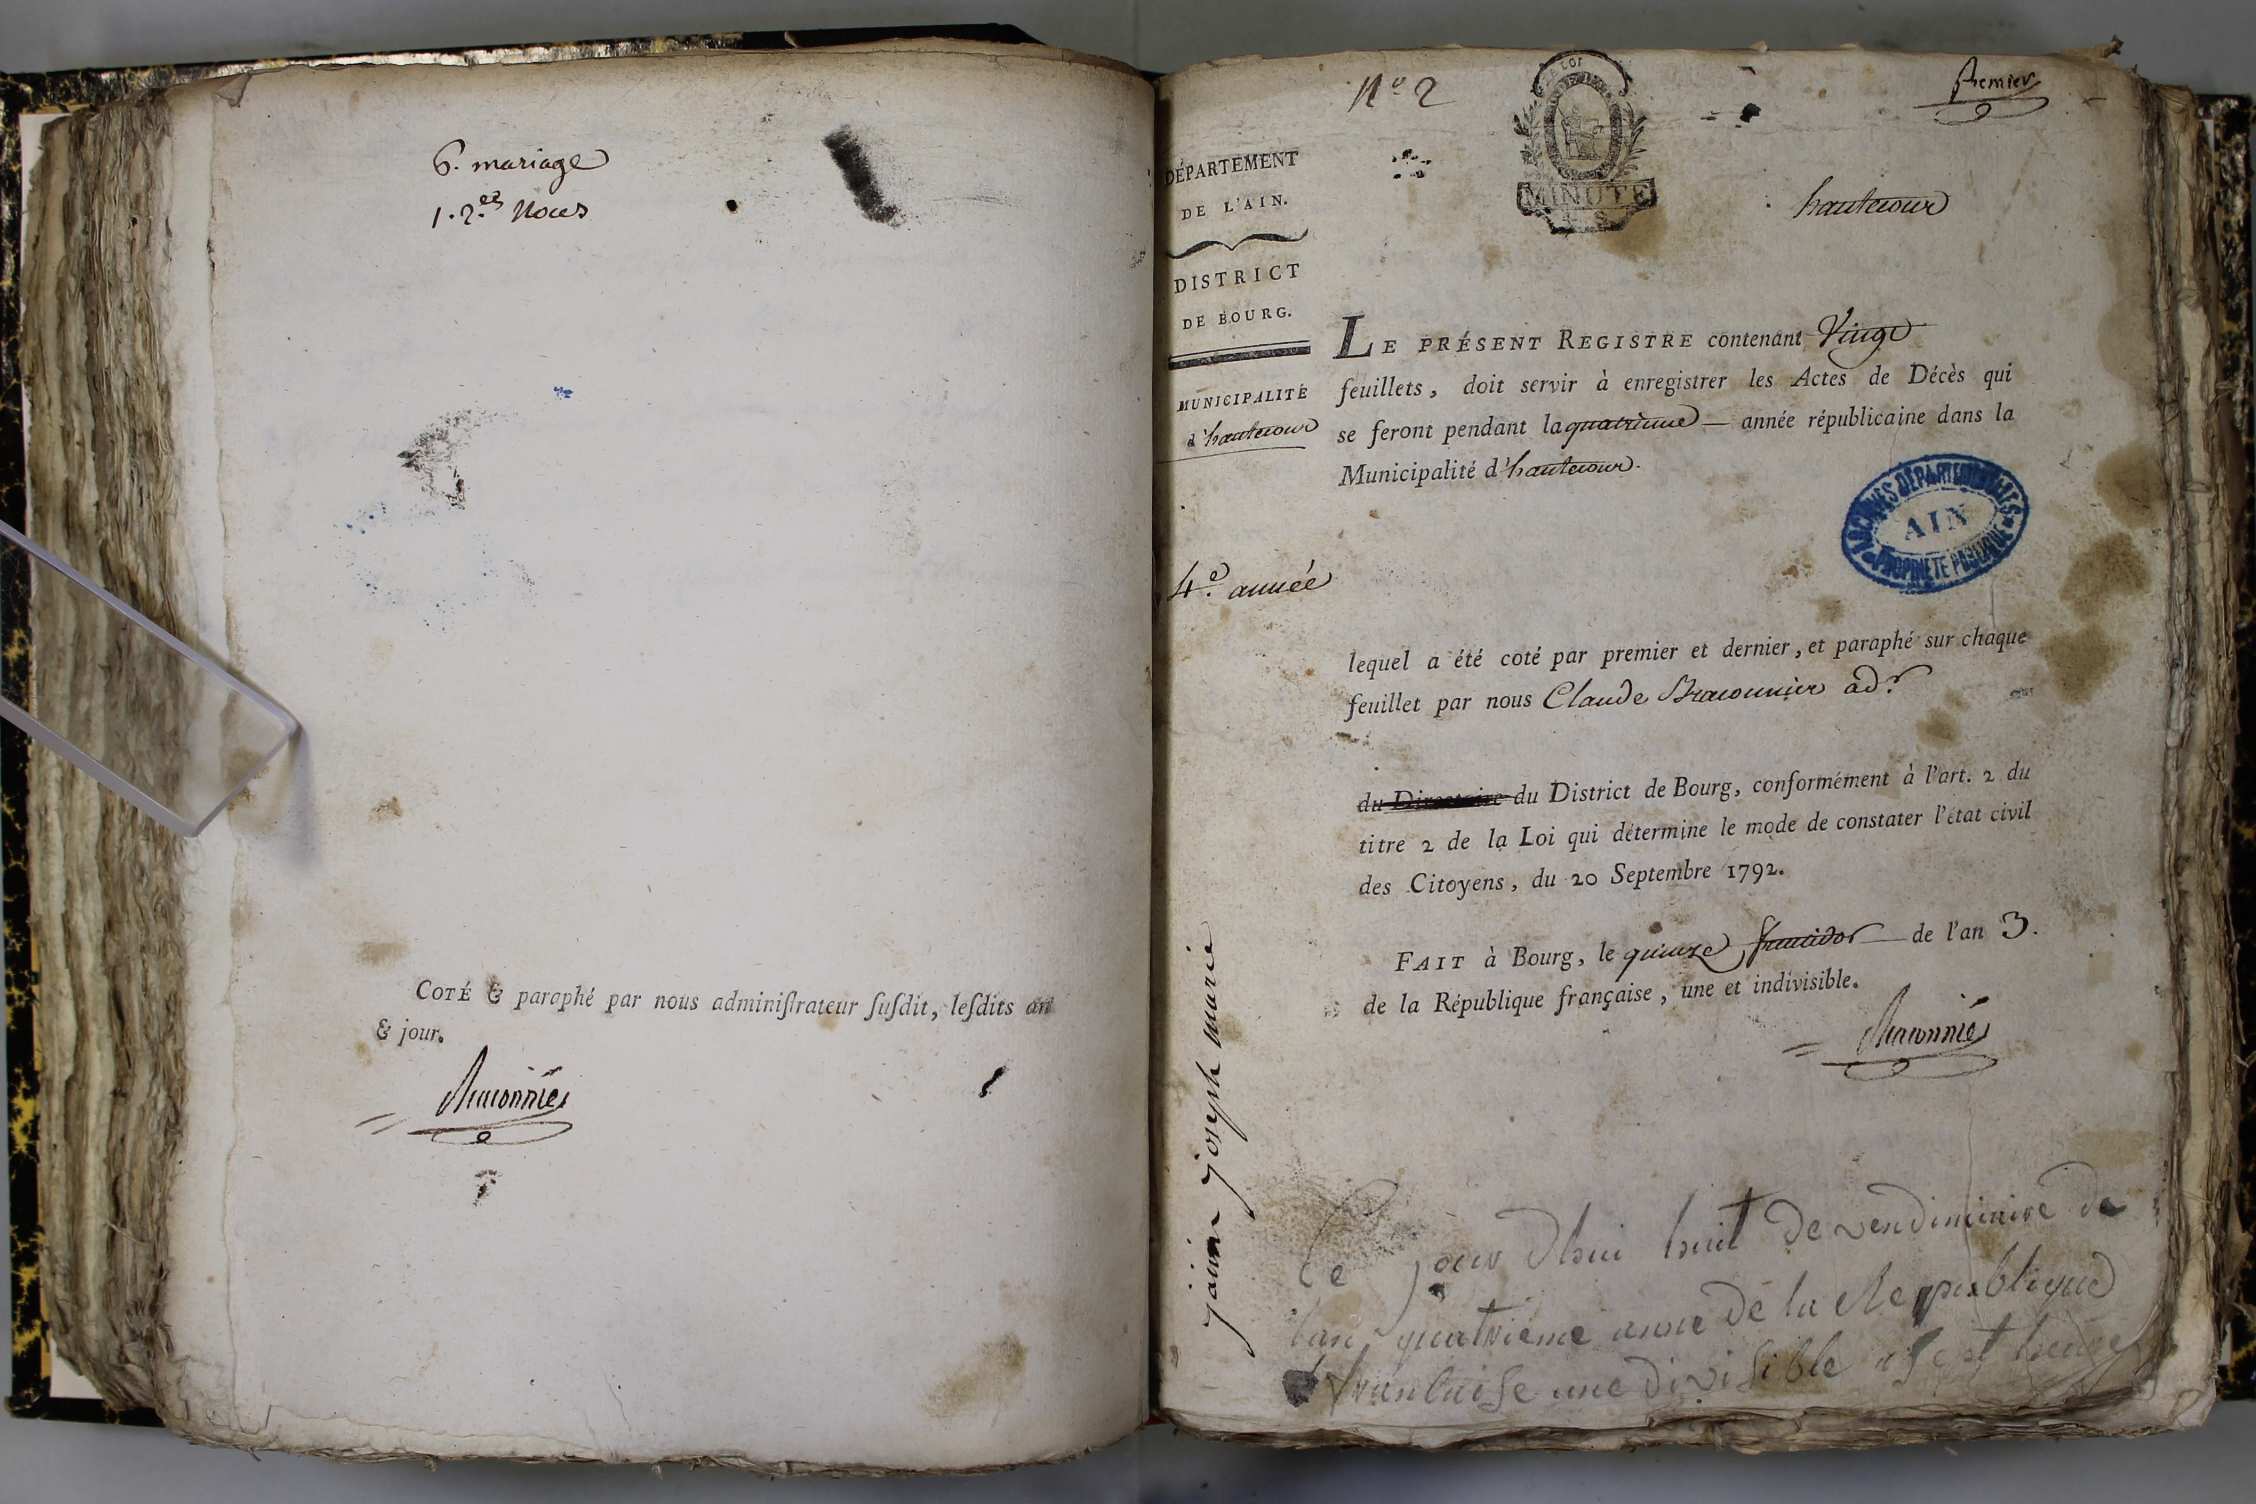 6. mariage
1. 2.es Noces
COTÉ & paraphé par nous adminiſtrateur ſuſdit, leſdits an
& jour.
Braconnier
N° 2
LA LOI
MINUTE
premier
DÉPARTEMENT
DE L'AIN.
DISTRICT
DE BOURG.
MUNICIPALITÉ
d'hautecour
4.e année
jainin joseph marie
hautecour
LE PRÉSENT REGISTRE contenant Vingt
feuillets, doit servir à enregistrer les Actes de Décès qui
se feront pendant la quatrieme — année républicaine dans la
Municipalité d'hautecour.
ARCHIVES DÉPARTEMENTALES
AIN
PROPRIÉTÉ PUBLIQUE
lequel a été coté par premier et dernier, et paraphé sur chaque
feuillet par nous Claude Braconnier adr
du Directoire du District de Bourg, conformément à l'art. 2 du
titre 2 de la Loi qui détermine le mode de constater l'état civil
des Citoyens, du 20 Septembre 1792.
FAIT à Bourg, le quinze fructidor — de l'an 3.
de la République française, une et indivisible.
Braconnier
Ce jour dhui huit de vendiminire de
lan quatrieme anne de la Republique
franlaise une divisible a sept heure